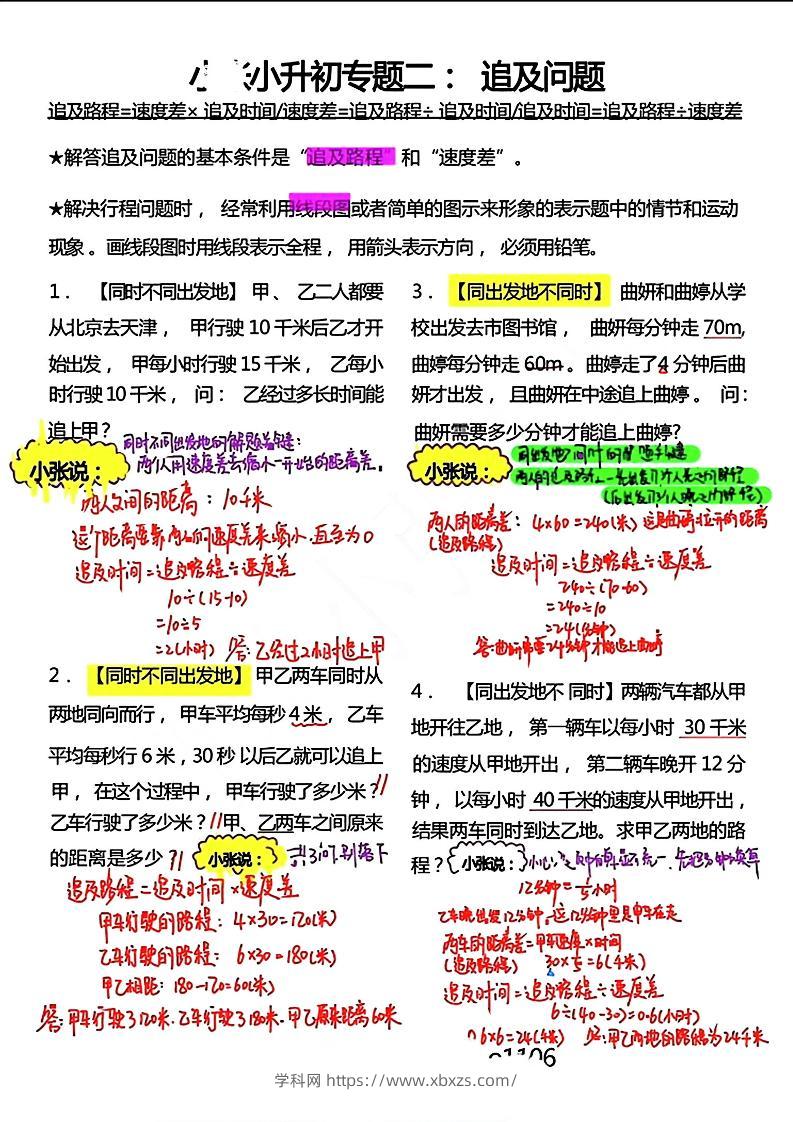 小张小升初专题二： 追及问题
追及路程=速度差× 追及时间/速度差=追及路程÷ 追及时间/追及时间=追及路程÷速度差
★解答追及问题的基本条件是“追及路程”和“速度差”。
★解决行程问题时， 经常利用线段图或者简单的图示来形象的表示题中的情节和运动
现象。画线段图时用线段表示全程， 用箭头表示方向， 必须用铅笔。
1． 【同时不同出发地】 甲、 乙二人都要
从北京去天津， 甲行驶 10 千米后乙才开
始出发， 甲每小时行驶 15 千米， 乙每小
时行驶 10 千米， 问： 乙经过多长时间能
追上甲？
同时不同出发地的解题关键：
两人用速度差去缩小一开始的距离差。
小张说：
两人之间的距离：10千米
这个距离要靠两人的速度差来缩小.直至为0
追及时间=追及路程÷速度差
10÷(15-10)
=10÷5
=2(小时) 答：乙经过2小时追上甲
2． 【同时不同出发地】 甲乙两车同时从
两地同向而行， 甲车平均每秒 4 米， 乙车
平均每秒行 6 米，30 秒 以后乙就可以追上
甲， 在这个过程中， 甲车行驶了多少米？
乙车行驶了多少米？ 甲、乙两车之间原来
的距离是多少？
小张说：
共3问.别落下
追及路程=追及时间×速度差
甲车行驶的路程：4×30=120(米)
乙车行驶的路程：6×30=180(米)
甲乙相距：180-120=60(米)
答：甲车行驶了120米.乙车行驶了180米.甲乙原来距离60米
3． 【同出发地不同时】 曲妍和曲婷从学
校出发去市图书馆， 曲妍每分钟走 70m,
曲婷每分钟走 60m 。曲婷走了4 分钟后曲
妍才出发， 且曲妍在中途追上曲婷 。 问：
曲妍需要多少分钟才能追上曲婷?
小张说：
同出发地不同时的解题关键
两人的追及路程=先出发的人先走的路程
两人的距离差：4×60=240(米)
(追及路程)
追及时间=追及路程÷速度差
240÷(70-60)
=240÷10
=24(分钟)
答：曲妍需要24分钟才能追上曲婷
4． 【同出发地不 同时】两辆汽车都从甲
地开往乙地， 第一辆车以每小时 30 千米
的速度从甲地开出， 第二辆车晚开 12 分
钟， 以每小时 40 千米的速度从甲地开出，
结果两车同时到达乙地。求甲乙两地的路
程？
小张说：
12分钟=1/5小时
乙车晚出发12分钟,这12分钟里是甲车在走
两车的距离差=甲车速度×时间
(追及路程) 30×1/5=6(千米)
追及时间=追及路程÷速度差
6÷(40-30)=0.6(小时)
答：甲乙两地的路程为24千米
学科网 https://www.xbxzs.com/